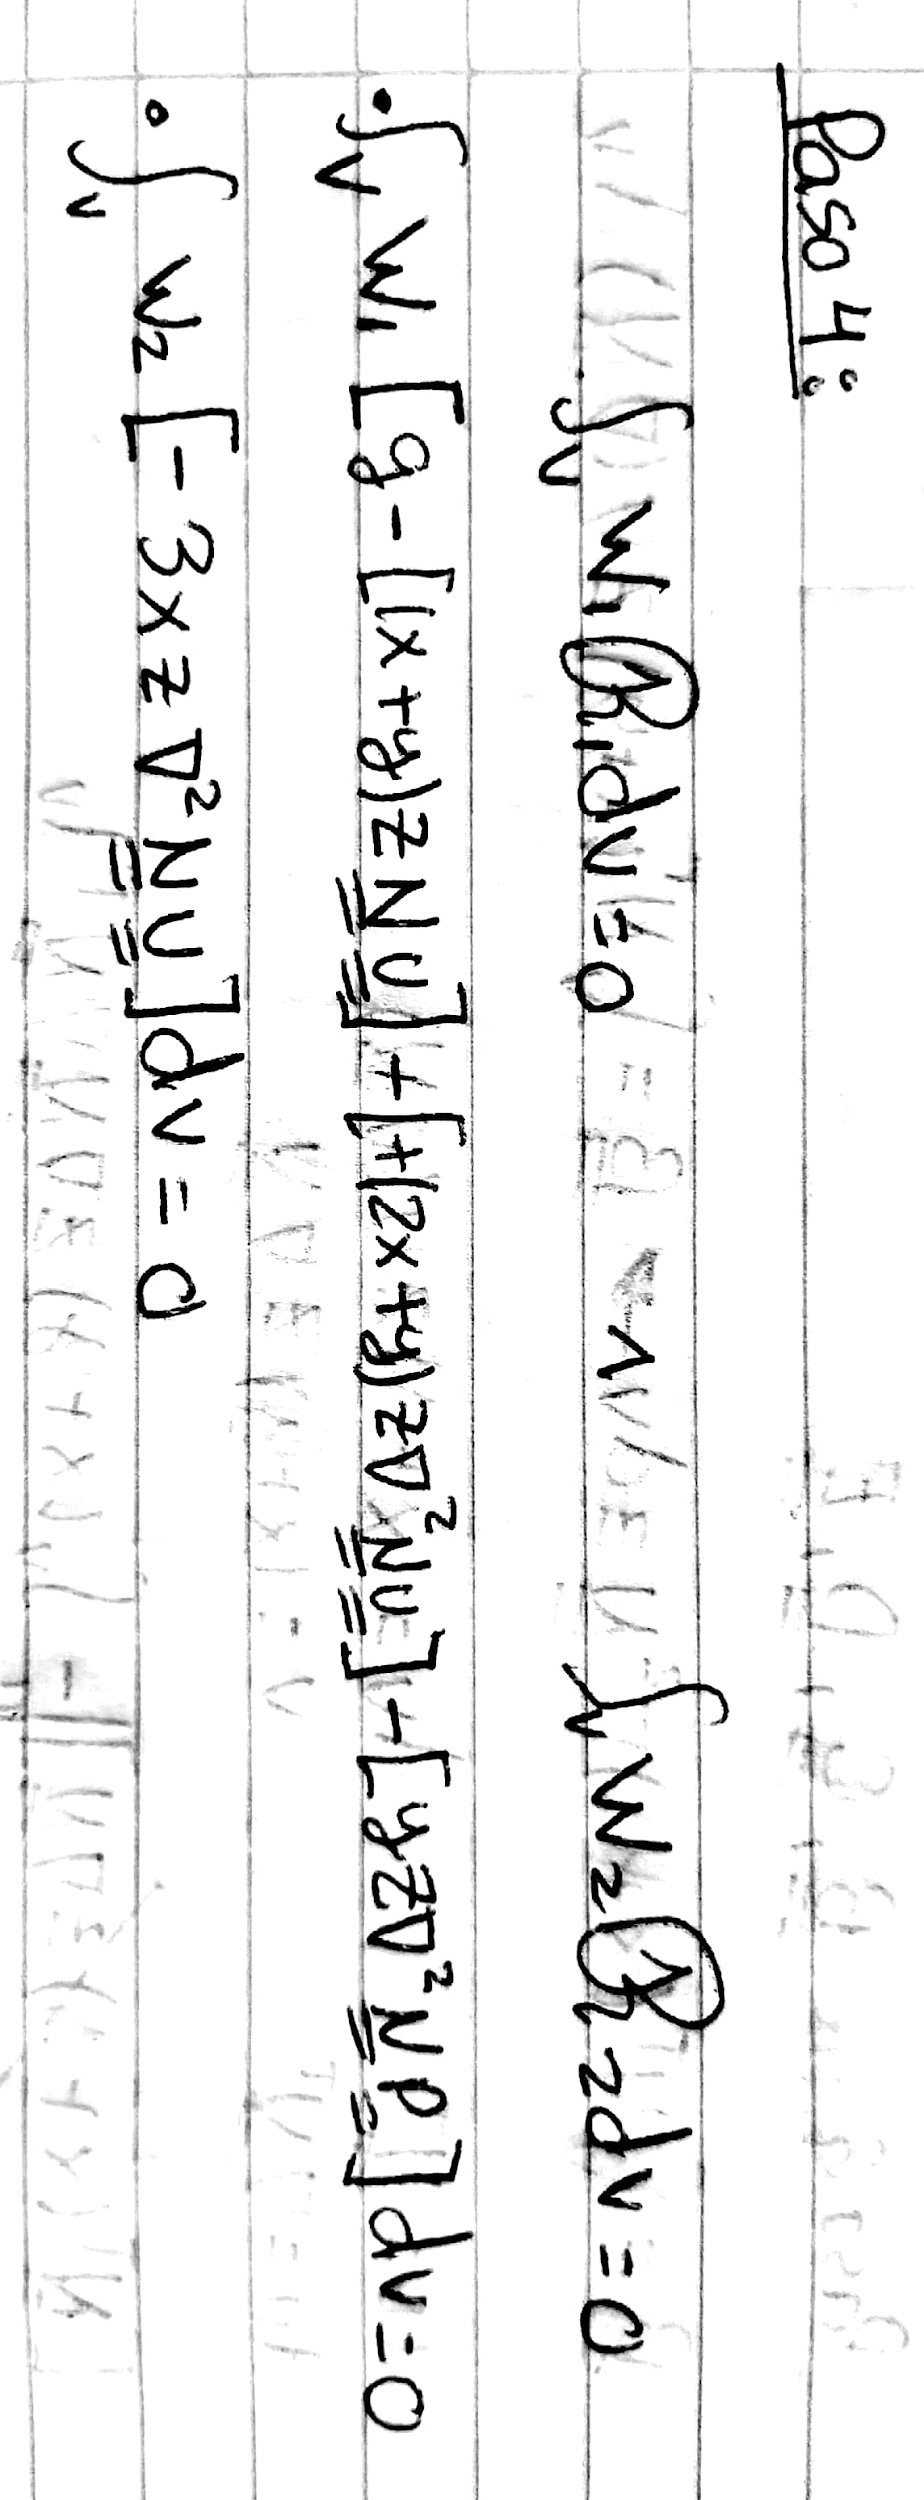 Paso 4:
∫v W1 R1 dv = 0 ∫v W2 R2 dv = 0
• ∫v W1 [g - [(x+y)z N U] + [+(2x+y)z ∇² N U] - [yz ∇² N P] dv = 0
• ∫v W2 [-3xz ∇² N U] dv = 0